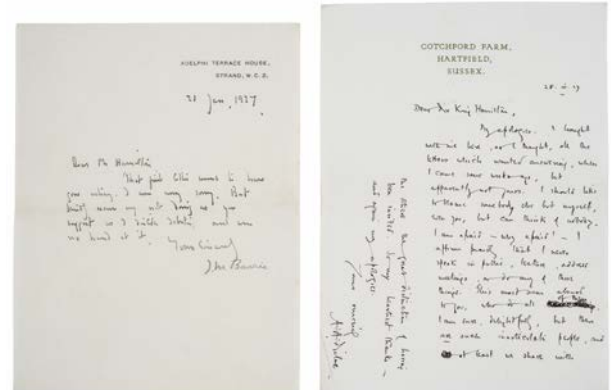 ADELPHI TERRACE HOUSE,
STRAND, W.C.2.
Jan, 1937
Dear Mr Hamilton
That first letter seems to have
gone astray. I am very sorry. But
my not doing as you
suggest
at it.
Yours sincerely
J.M. Barrie
COTCHFORD FARM,
HARTFIELD,
SUSSEX.
Dear Mr King Hamilton,
My apologies. I brought
with me here, or I thought, all the
letters which wanted answering, when
I came some weeks ago, but
apparently not yours. I should like
to blame somebody else but myself,
can think of nobody.
I am afraid – why afraid? – I
affirm proudly that I never
speak in public, lecture, address
meetings, or do any of those
things. This must seem absurd
to you, who do all
I am sure, delightfully, but there
are such inarticulate people, and
at least we share with
the great distinction of having
been invited. So my heartiest thanks –
and again my apologies
Yours sincerely
A.A. Milne.